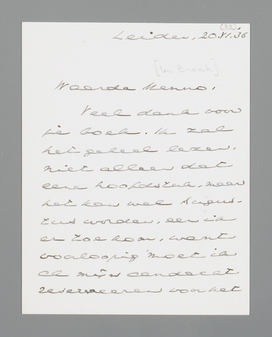 Leiden, 20.XI.36
[ter Braak]
Waarde Menno,
Veel dank voor
je boek. Ik zal
het geheel lezen,
niet alleen dat
eene hoofdstuk, maar
het kan wel Augus-
tus worden, eer ik
er toe kom, want
voorloopig moet ik
al mijn aandacht
reserveeren voor het